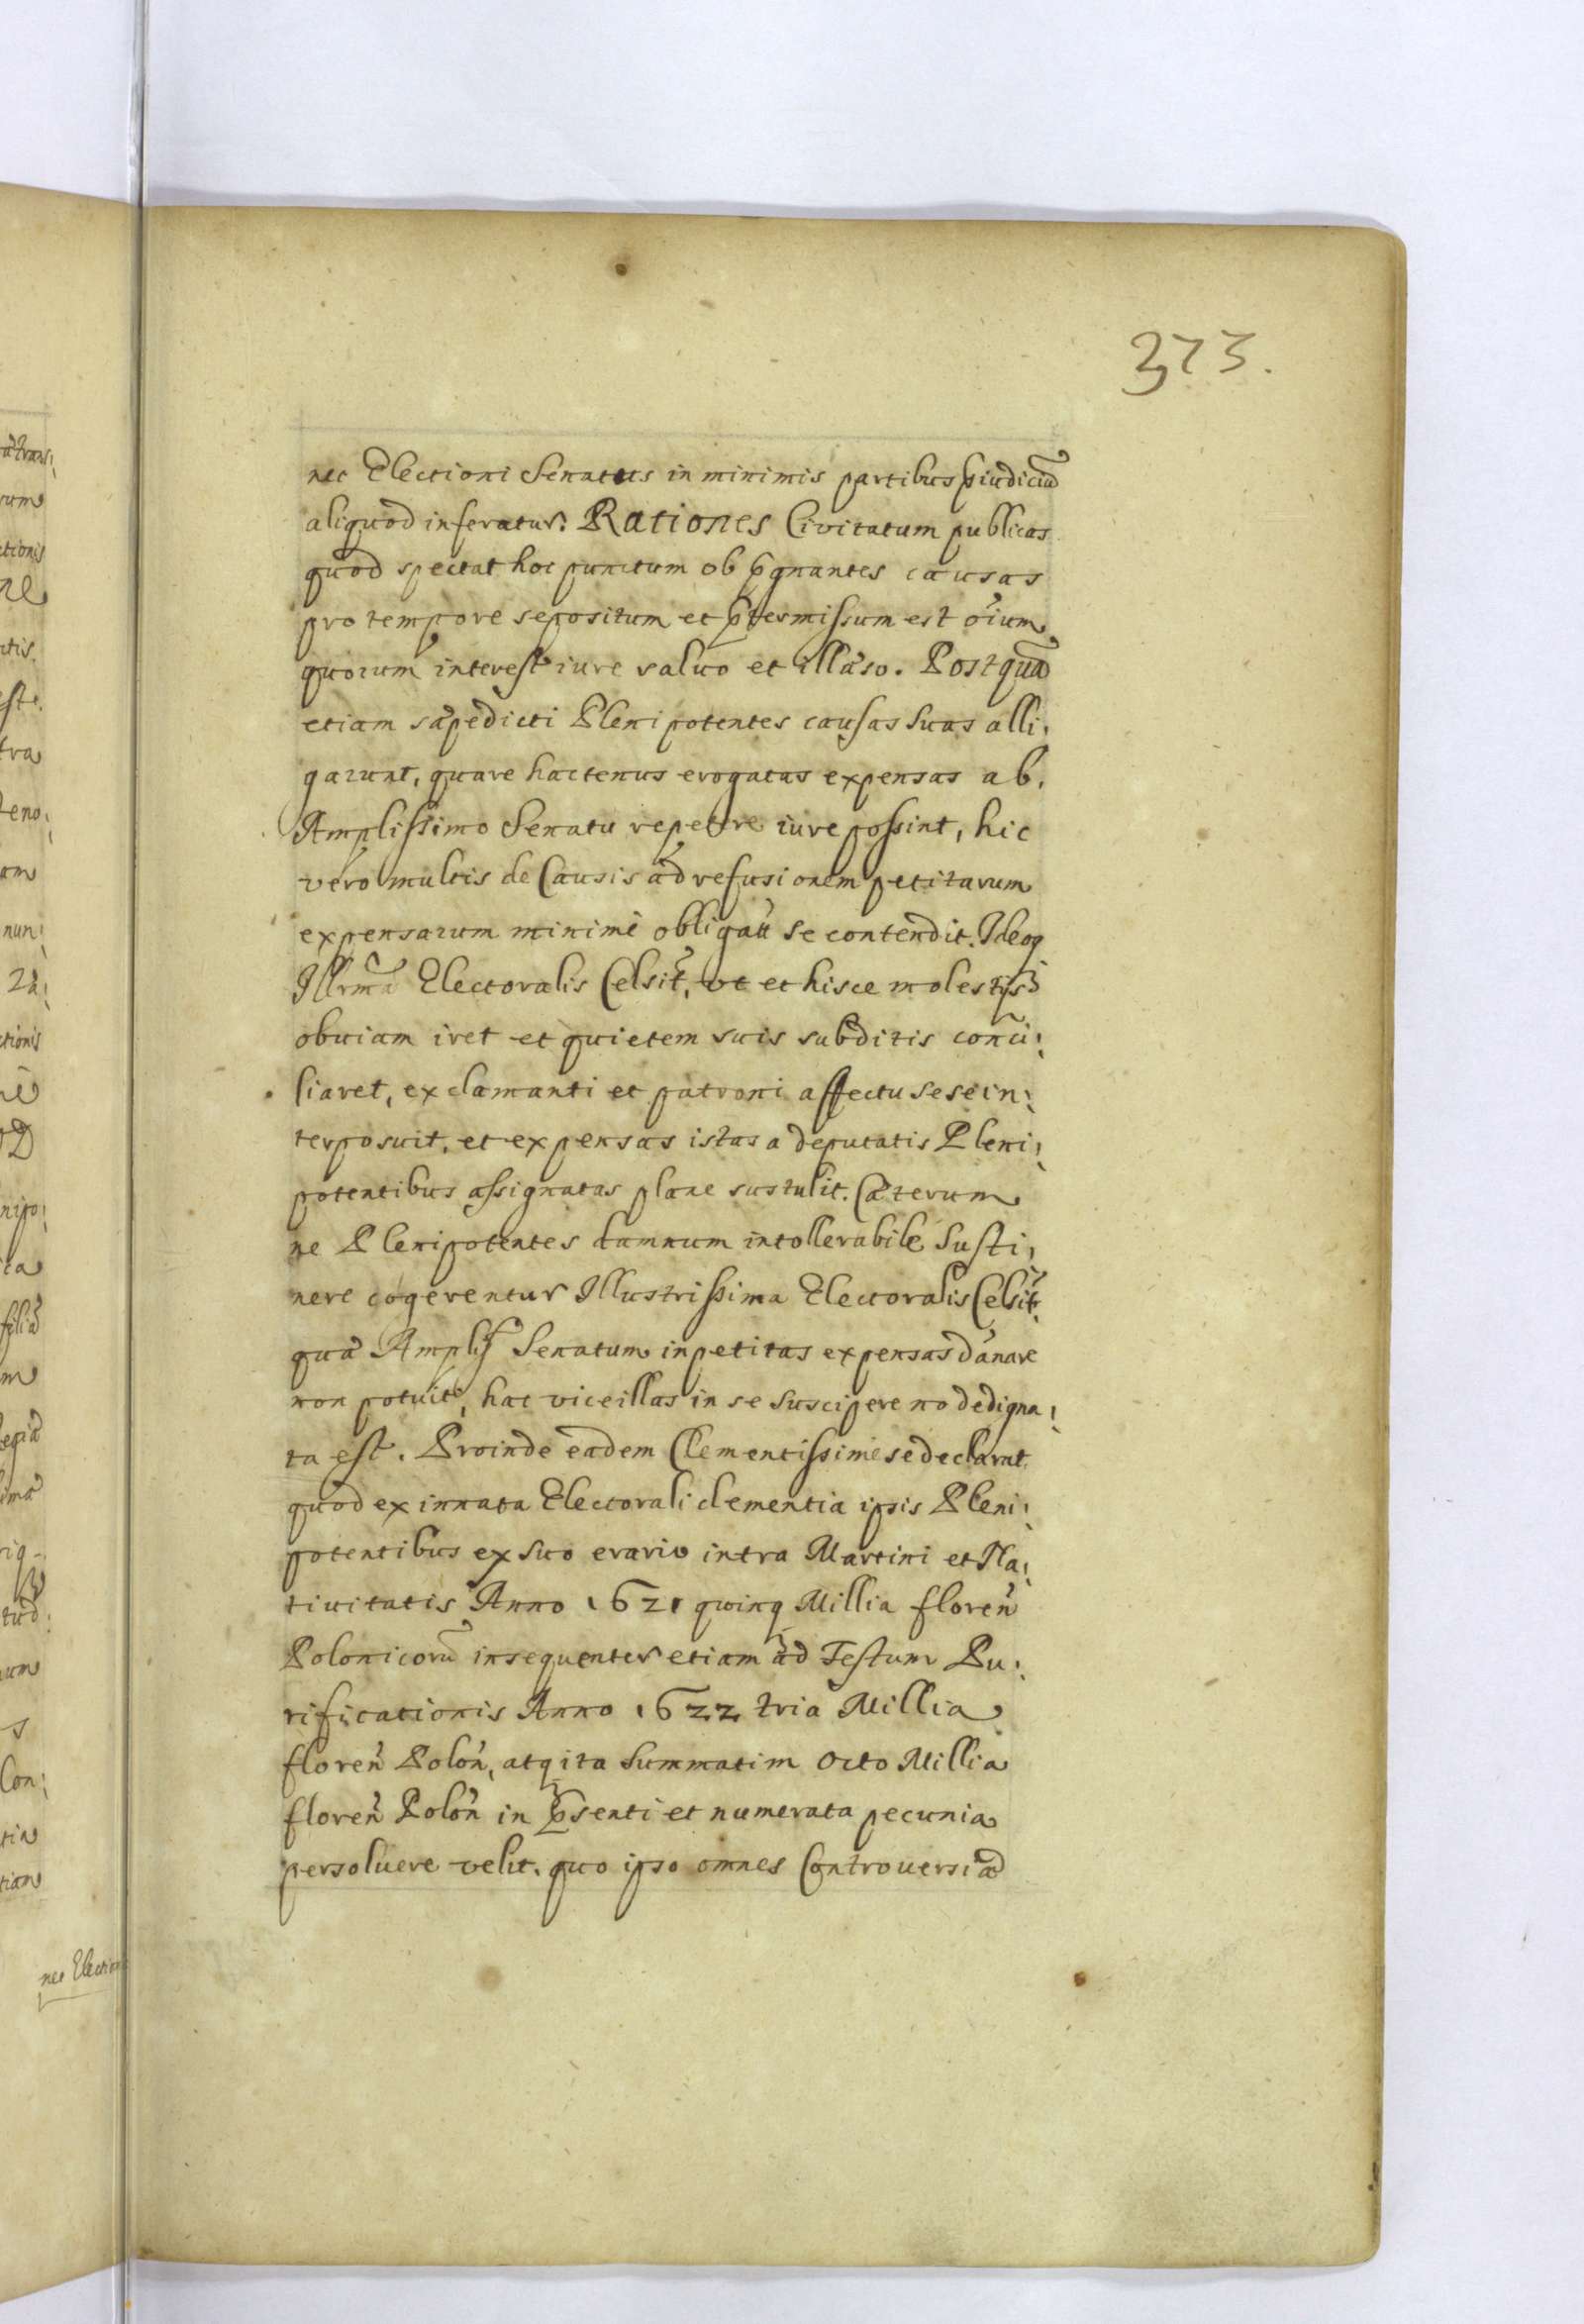 373.
nec Electioni Senatus in minimis partibus p̃iudiciũ
aliquod inferatur: Rationes Civitatum publicas
quod spectat hoc punctum ob p̃gnantes causas
pro tempore sepositum et p̃termissum est oĩum
quorum interest iure salvo et illæso. Postquã
etiam sæpedicti Plenipotentes causas suas alli:
garunt, quare hactenus erogatas expensas ab.
Amplissimo Senatu repetere iure possint, hic
vero multis de Causis ad refusionem petitarum
expensarum minimè obligari se contendit. Ideoq
Illrma Electoralis Celsit, ut et hisce molestijs
obviam iret et quietem suis subditis conci:
liaret, ex clamanti et patroni affectu sese in:
terposuit, et expensas istas a deputatis Pleni:
potentibus assignatas plane sustulit. Cæterum
ne Plenipotentes damnum intollerabile susti:
nere cogerentur Illustrissima Electoralis Celsit
qua Ampliss Senatum in petitas expensas dãnare
non potuit, hac vice illas in se suscipere nō dedigna:
ta est. Proinde eadem Clementissime se declarat
quod ex innata Electorali clementia ipsis Pleni:
potentibus ex suo erario intra Martini et Na:
tivitatis Anno 1621 quinq Millia floreñ
Polonicorũ insequenter etiam ad Festum Pu:
rificationis Anno 1622 tria Millia
floreñ Poloñ, atq ita summatim octo Millia
floreñ Poloñ in p̃senti et numerata pecunia
persoluere velit. quo ipso omnes Controversiæ
nec Election